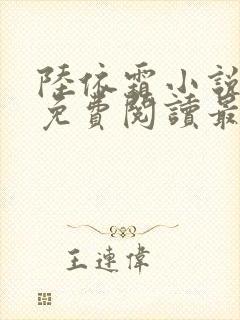 陸依霜小說
免費閱讀最
王連偉